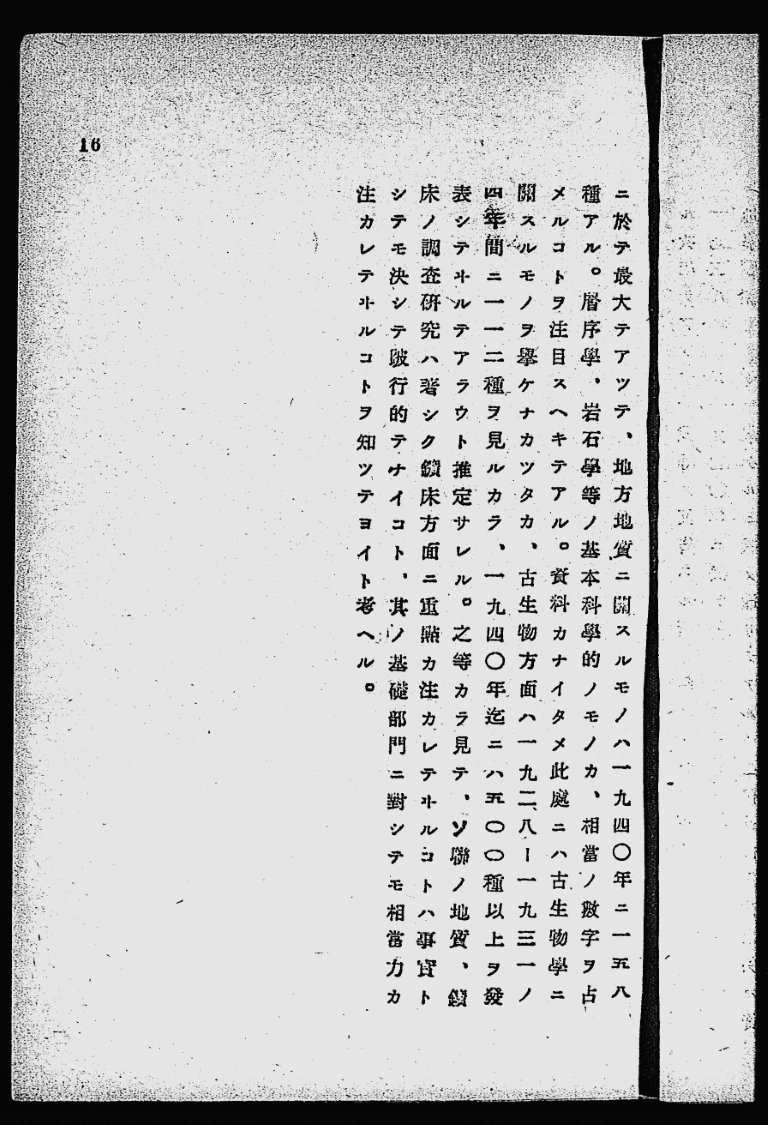 ニ於テ最大テアツテ、地方地質ニ關スルモノハ一九四〇年ニ一五八
種アル。層序學、岩石學等ノ基本科學的ノモノカ、相當ノ數字ヲ占
メルコトヲ注目スヘキテアル。資料カナイタメ此處ニハ古生物學ニ
關スルモノヲ擧ケナカツタカ、古生物方面ハ一九二八ー一九三一ノ
四年間ニ一一二種ヲ見ルカラ、一九四〇年迄ニハ五〇〇種以上ヲ發
表シテヰルテアラウト推定サレル。之等カラ見テ、ソ聯ノ地質、鑛
床ノ調査硏究ハ著シク鑛床方面ニ重點カ注カレテヰルコトハ事實ト
シテモ決シテ跛行的テナイコト、其ノ基礎部門ニ對シテモ相當力カ
注カレテヰルコトヲ知ツテヨイト考ヘル。
16